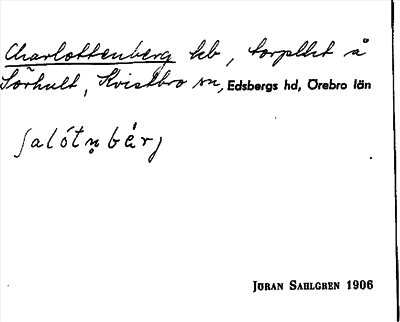 Charlottenberg lhb, torpllht å
Sörhult, Kvistbro sn, Edsbergs hd, Örebro län
ʃalótn̥bærj
JÖRAN SAHLGREN 1906